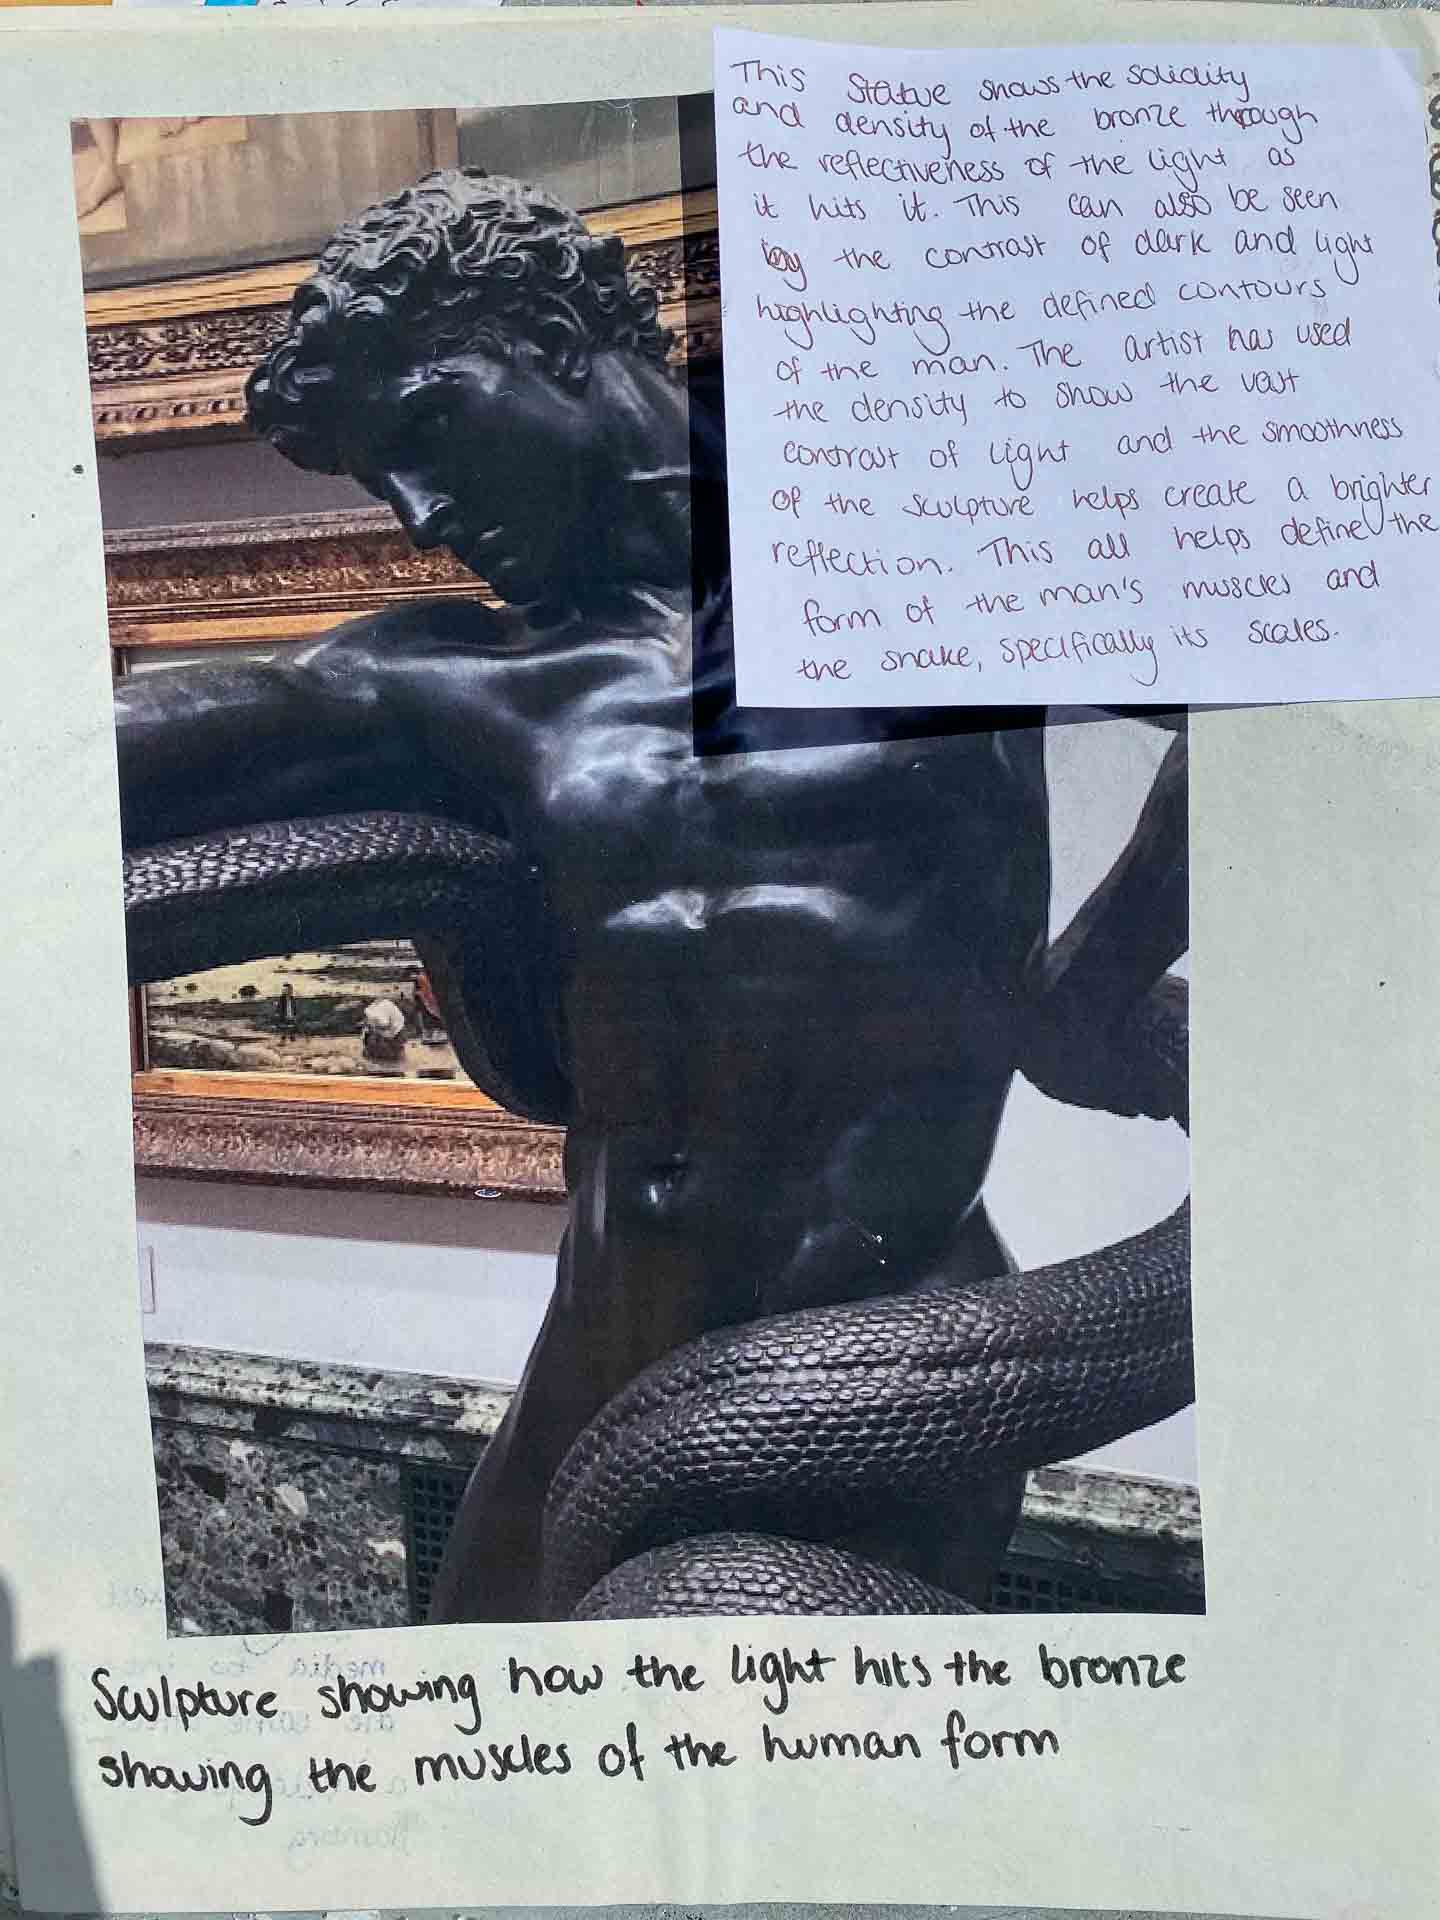 This statue shows the solidity
and density of the bronze through
the reflectiveness of the light as
it hits it. This can also be seen
by the contrast of dark and light
highlighting the defined contours
of the man. The artist has used
the density to show the vast
contrast of light and the smoothness
of the sculpture helps create a brighter
reflection. This all helps define the
form of the man's muscles and
the snake, specifically its scales.
Sculpture showing how the light hits the bronze
showing the muscles of the human form